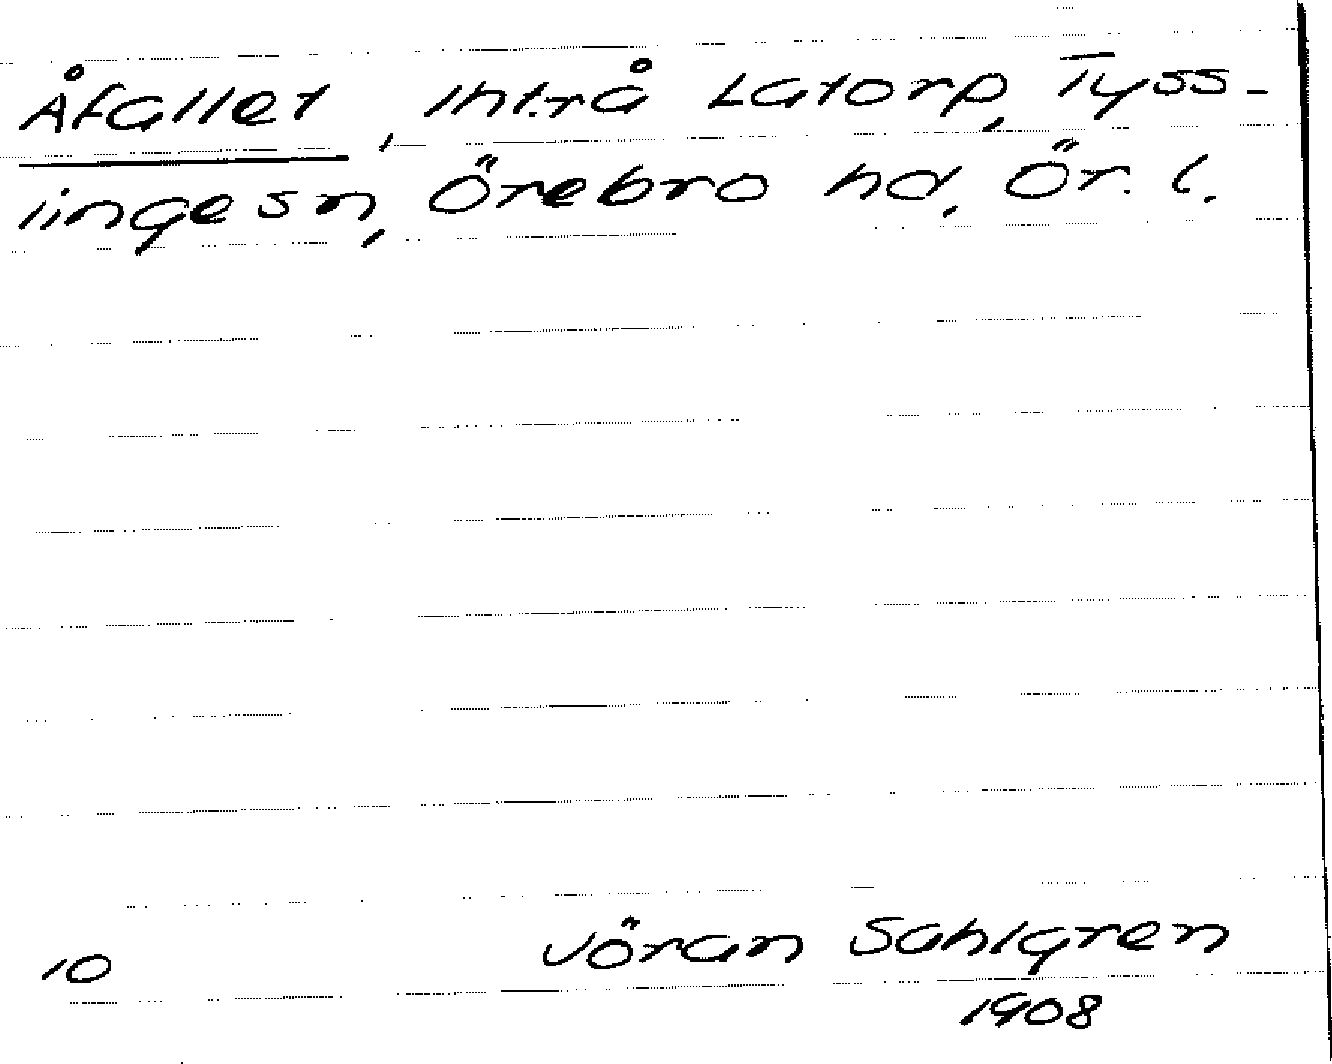 Åfallet, Iht.rå Latorp, Tyss-
linge sn, Örebro hd, Ör. l.
10 Jöran Sahlgren
1908